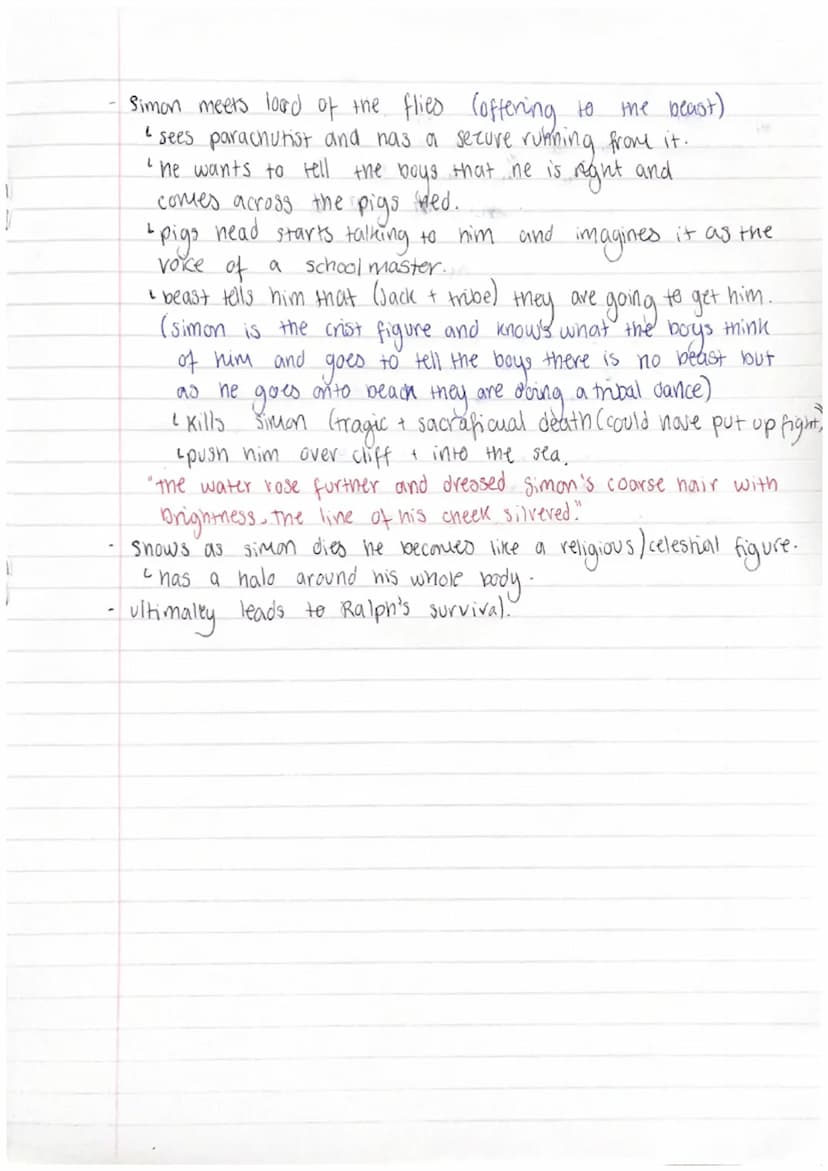 - Simon meets load of the flies (offering to the beast)
↳ sees parachutist and has a sezure running from it.
↳ he wants to tell the boys that he is right and
comes across the pigs hed.
↳ pigs head starts talking to him and imagines it as the
voice of a schoolmaster.
↳ beast tells him that (Jack + tribe) they are going to get him.
(simon is the crist figure and know's what the boys think
of him and goes to tell the boys there is no beast but
as he goes onto beach they are doing a tribal dance)
↳ kills Simon (tragic + sacraficual death (could have put up fight)
↳ push him over cliff + into the sea.
"the water rose further and dressed Simon's coarse hair with
brightness. The line of his cheek silvered."
- shows as simon dies he becomes like a religious/celestial figure.
↳ has a halo around his whole body.
- ultimatley leads to Ralph's survival.